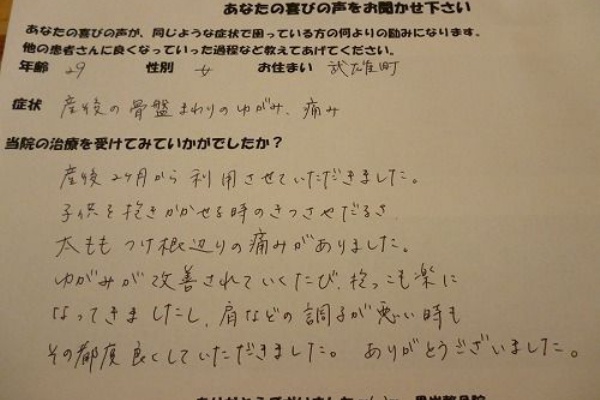 あなたの喜びの声をお聞かせ下さい
あなたの喜びの声が、同じような症状で困っている方の何よりの励みになります。
他の患者さんに良くなっていった過程など教えてあげてください。
年齢 29 性別 女 お住まい 武雄町
症状 産後の骨盤まわりのゆがみ、痛み
当院の治療を受けてみていかがでしたか？
産後2ヶ月から利用させていただきました。
子供を抱きかかせる時のきつさやだるさ
太ももつけ根辺りの痛みがありました。
ゆがみが改善されていくたび、抱っこも楽に
なってきましたし、肩などの調子が悪い時も
その都度良くしていただきました。ありがとうございました。